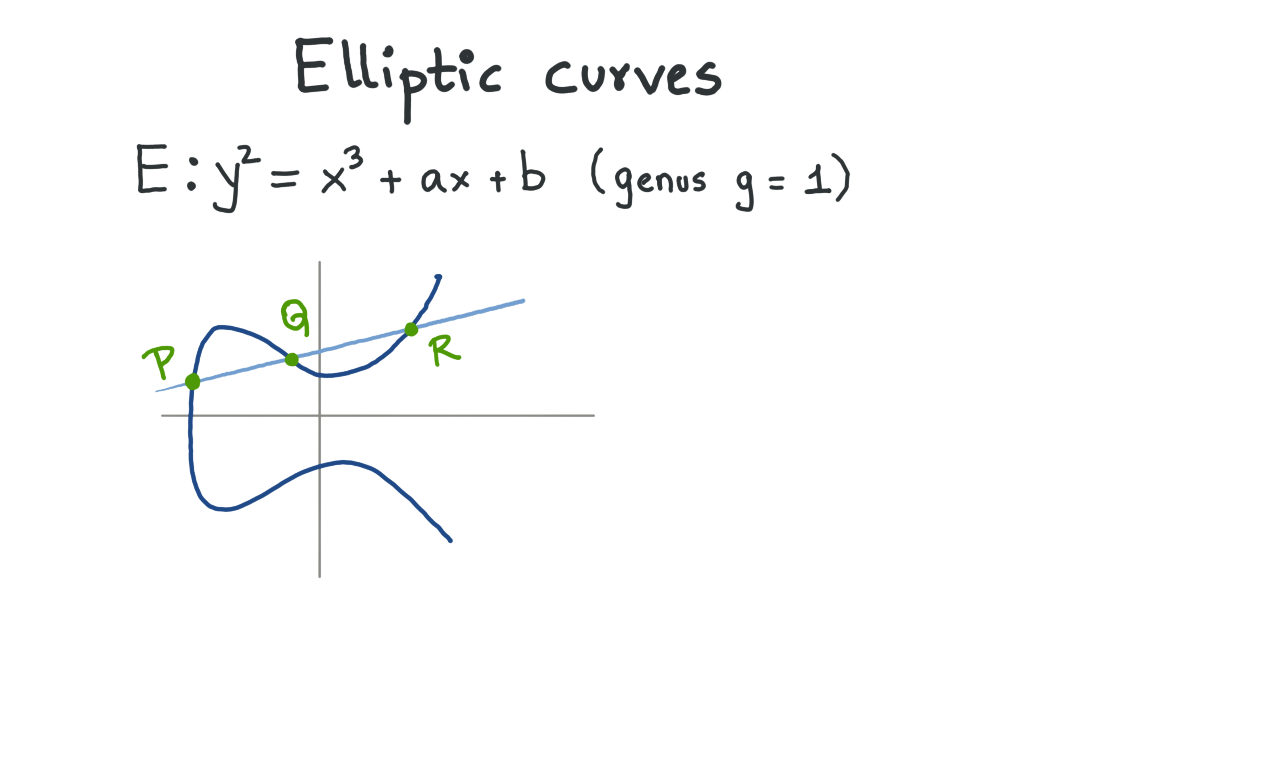 Elliptic curves
E : y² = x³ + ax + b (genus g = 1)
Q
P
R